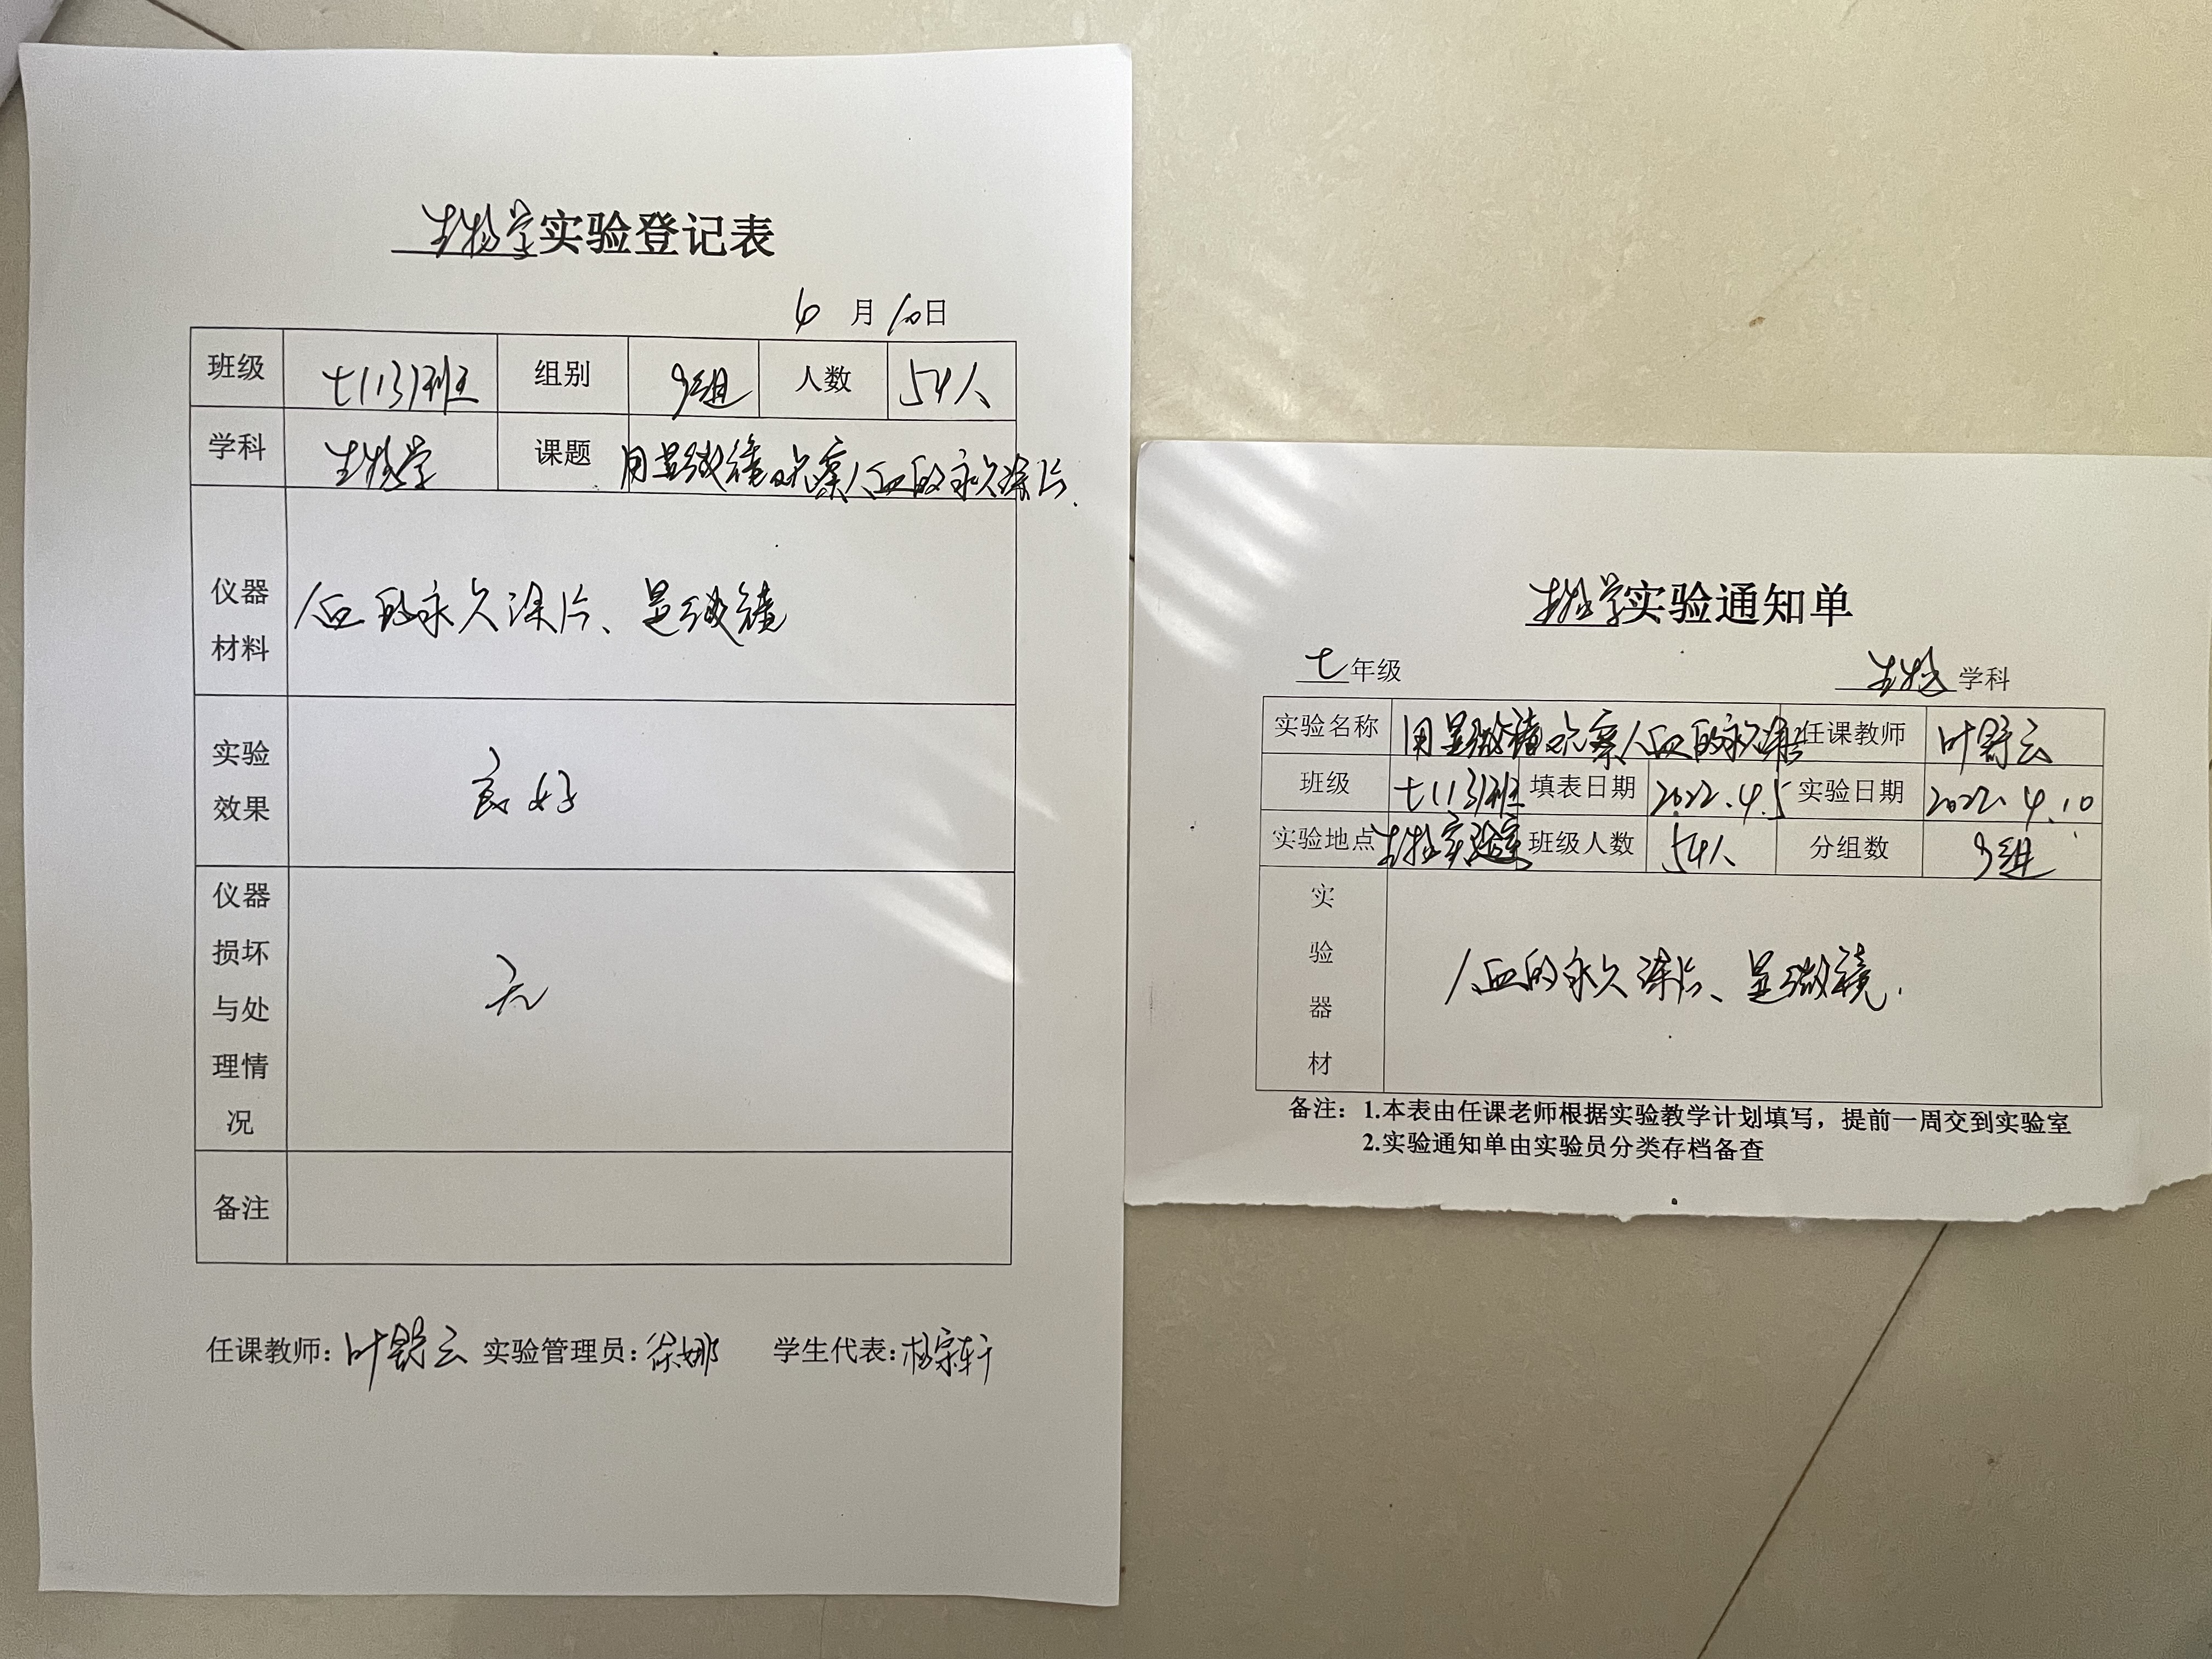 生物学实验登记表
4月10日
班级 七(13)班 组别 9组 人数 54人
学科 生物学 课题 用显微镜观察人血的永久涂片.
仪器材料 人血的永久涂片、显微镜
实验效果 良好
仪器损坏与处理情况 无
备注
任课教师:叶舒云 实验管理员:徐娜 学生代表:杨宗轩
生物学实验通知单
七年级 生物学科
实验名称 用显微镜观察人血的永久涂片 任课教师 叶舒云
班级 七(13)班 填表日期 2022.4.5 实验日期 2022.4.10
实验地点 生物实验室 班级人数 54人 分组数 9组
实验器材 人血的永久涂片、显微镜.
备注:1.本表由任课老师根据实验教学计划填写，提前一周交到实验室
2.实验通知单由实验员分类存档备查